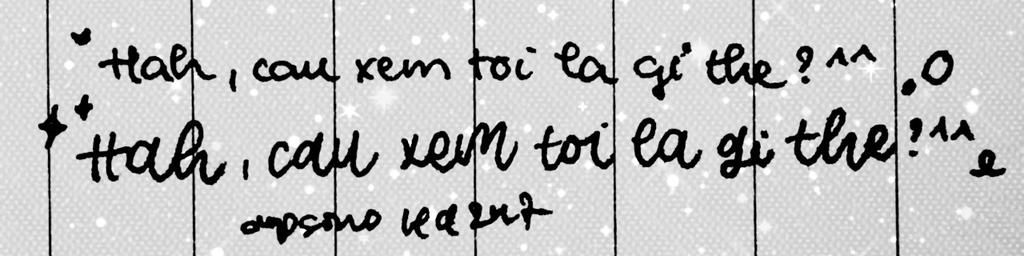 Hah, cau xem toi la gi the?^^
Hah, cau xem toi la gi the?^^